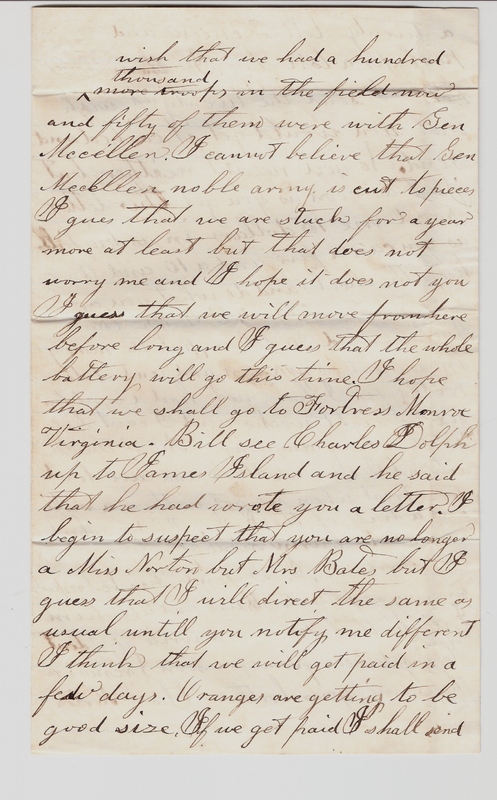 wish that we had a hundred
thousand
^ more troops in the field now
and fifty of them were with Gen
Mccellen. I cannot believe that Gen
Mcclellen noble army is cut to pieces
I gues that we are stuck for a year
more at least but that does not
worry me and I hope it does not you
I guess that we will move from here
before long and I guess that the whole
battery will go this time. I hope
that we shall go to Fortress Monroe
Virginia. Bill see Charles Dolph
up to James Island and he said
that he had wrote you a letter. I
begin to suspect that you are no longer
a Miss Norton but Mrs Bates but I
guess that I will direct the same as
usual untill you notify me different
I think that we will get paid in a
few days. Oranges are getting to be
good size. If we get paid I shall send